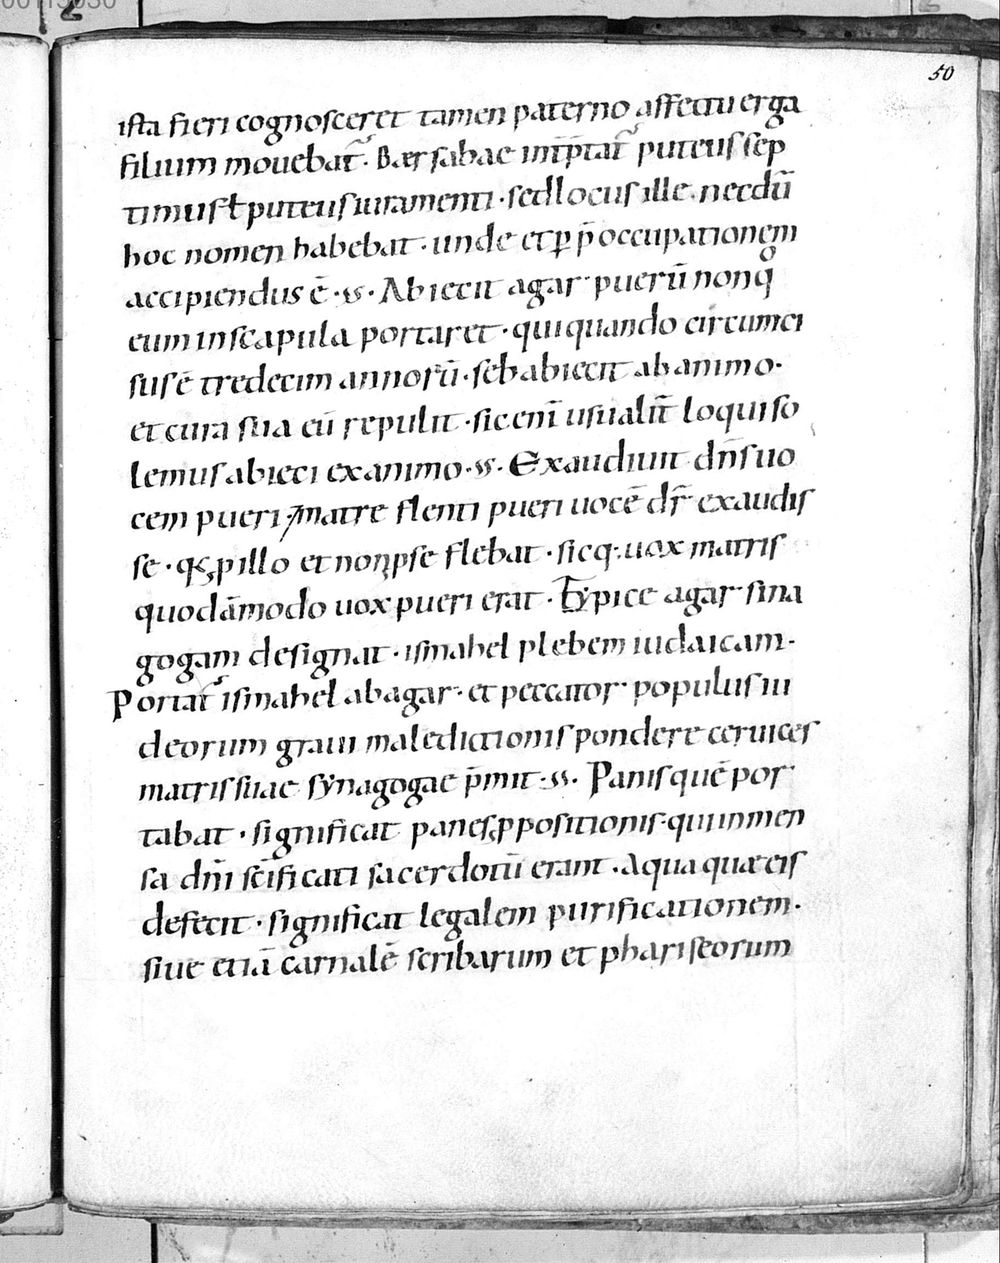 50
ista fieri cognosceret tamen paterno affectu erga
filium mouebat᷑. Bersabae int̅p̅tat᷑ puteus sep
timus ł puteus iuramenti. sed locus ille. necdū
hoc nomen habebat. unde et ꝑ p̅occupationem
accipiendus ē. Abiecit agar puerū non q̊
eum in scapula portaret. qui quando circumci
sus ē tredecim annorū. sed abiecit ab animo.
et cura sua eū repulit. sic enī usualit̅ loqui so
lemus abieci ex animo. Exaudiuit dn̅s uo
cem pueri, matre flenti pueri uocē dr̅ exaudis
se. ꝓ illo et non ipse flebat. sicq. uox matris
quodāmodo uox pueri erat. Typice agar sina
gogam designat. ismahel plebem iudaicam.
Portat᷑ ismahel ab agar. et peccator populus iu
deorum graui maledictionis pondere ceruices
matris suae synagogae p̅mit. Panis quē por
tabat. significat panes ꝓpositionis. qui in men
sa dn̅i sc̅ificati sacerdotū erant. Aqua quae eis
defecit. significat legalem purificationem.
siue etiā carnalē scribarum et phariseorum